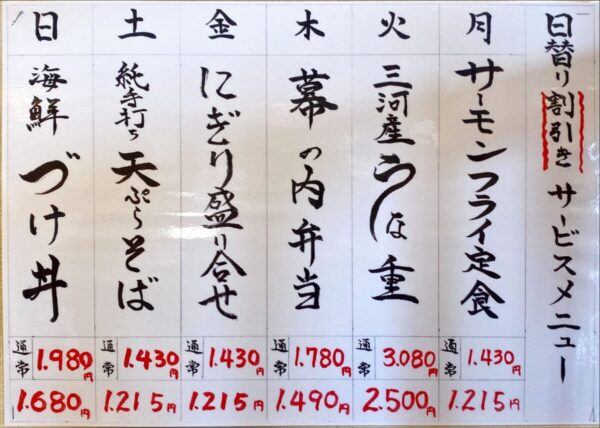 日替り割引きサービスメニュー
月
サーモンフライ定食
通常 1.430円
1.215円
火
三河産うな重
通常 3.080円
2.500円
木
幕の内弁当
通常 1.780円
1.490円
金
にぎり盛り合せ
通常 1.430円
1.215円
土
純手打ち天ぷらそば
通常 1.430円
1.215円
日
海鮮づけ丼
通常 1.980円
1.680円